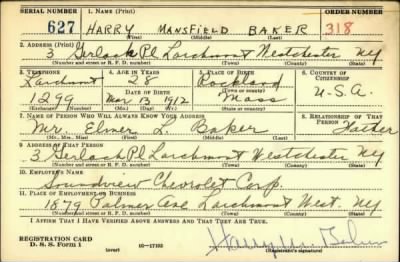 SERIAL NUMBER 1. NAME (Print) ORDER NUMBER
627 HARRY MANSFIELD BAKER 318
(First) (Middle) (Last)
2. ADDRESS (Print)
3 Gerlach Pl Larchmont Westchester NY
(Number and street) (Town) (County) (State)
3. TELEPHONE 4. AGE IN YEARS 5. PLACE OF BIRTH 6. COUNTRY OF CITIZENSHIP
Larchmont 28 Rockland
DATE OF BIRTH (Town or county) U.S.A.
1299 Mar 13 1912 Mass
(Mo.) (Day) (Yr.) (State or country)
7. NAME OF PERSON WHO WILL ALWAYS KNOW YOUR ADDRESS 8. RELATIONSHIP OF THAT PERSON
Mr. Elmer L. Baker Father
(Mr., Mrs., Miss) (First) (Middle) (Last)
9. ADDRESS OF THAT PERSON
3 Gerlach Pl Larchmont Westchester NY
(Number and street) (Town) (County) (State)
10. EMPLOYER'S NAME
Soundview Chevrolet Corp.
11. PLACE OF EMPLOYMENT OR BUSINESS
1879 Palmer Ave Larchmont West. NY
(Number and street) (Town) (County) (State)
I AFFIRM THAT I HAVE VERIFIED ABOVE ANSWERS AND THAT THEY ARE TRUE.
REGISTRATION CARD
D. S. S. Form 1 (over) 16-17105 Harry M. Baker